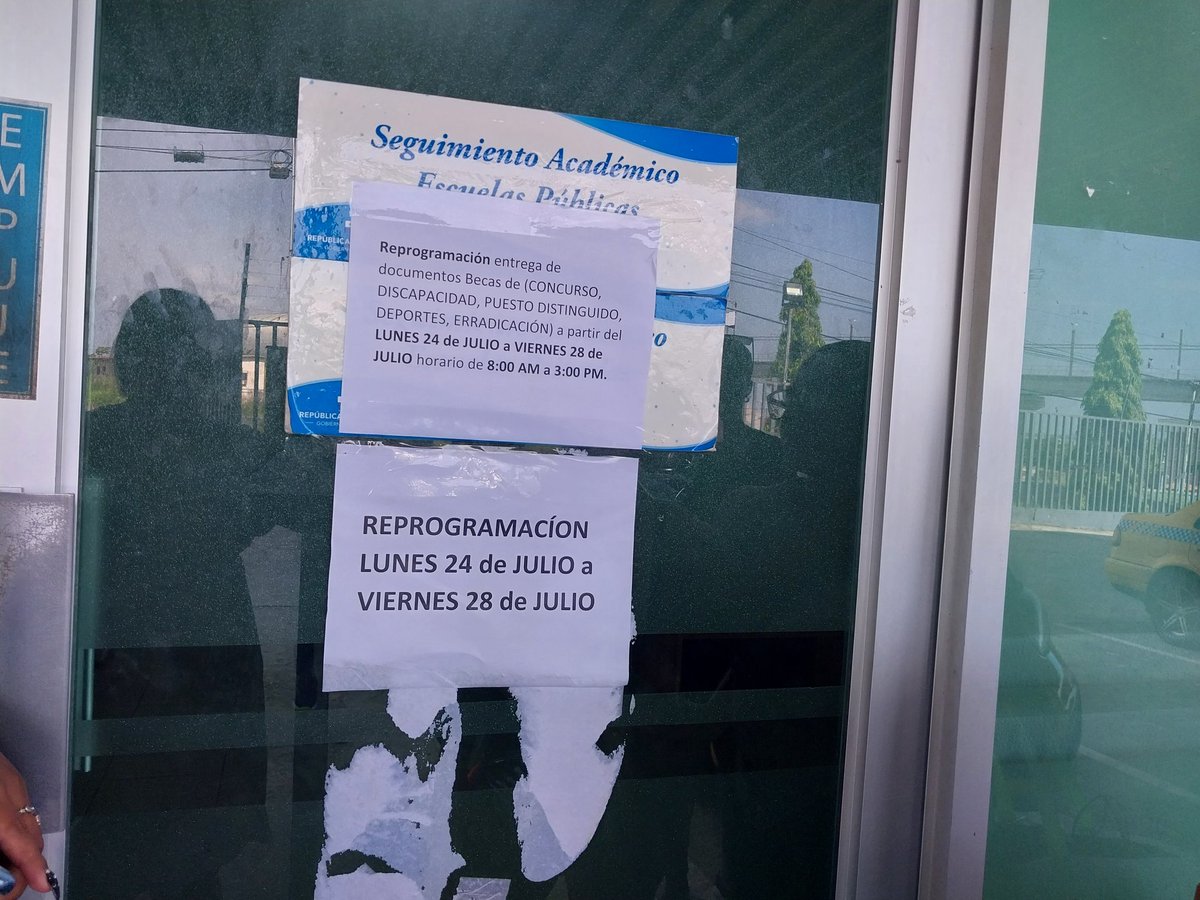 E
M
P
U
J
E
Seguimiento Académico
Escuelas Públicas
REPÚBLICA
Reprogramación entrega de
documentos Becas de (CONCURSO,
DISCAPACIDAD, PUESTO DISTINGUIDO,
DEPORTES, ERRADICACIÓN) a partir del
LUNES 24 de JULIO a VIERNES 28 de
JULIO horario de 8:00 AM a 3:00 PM.
REPÚBLICA
REPROGRAMACÍON
LUNES 24 de JULIO a
VIERNES 28 de JULIO